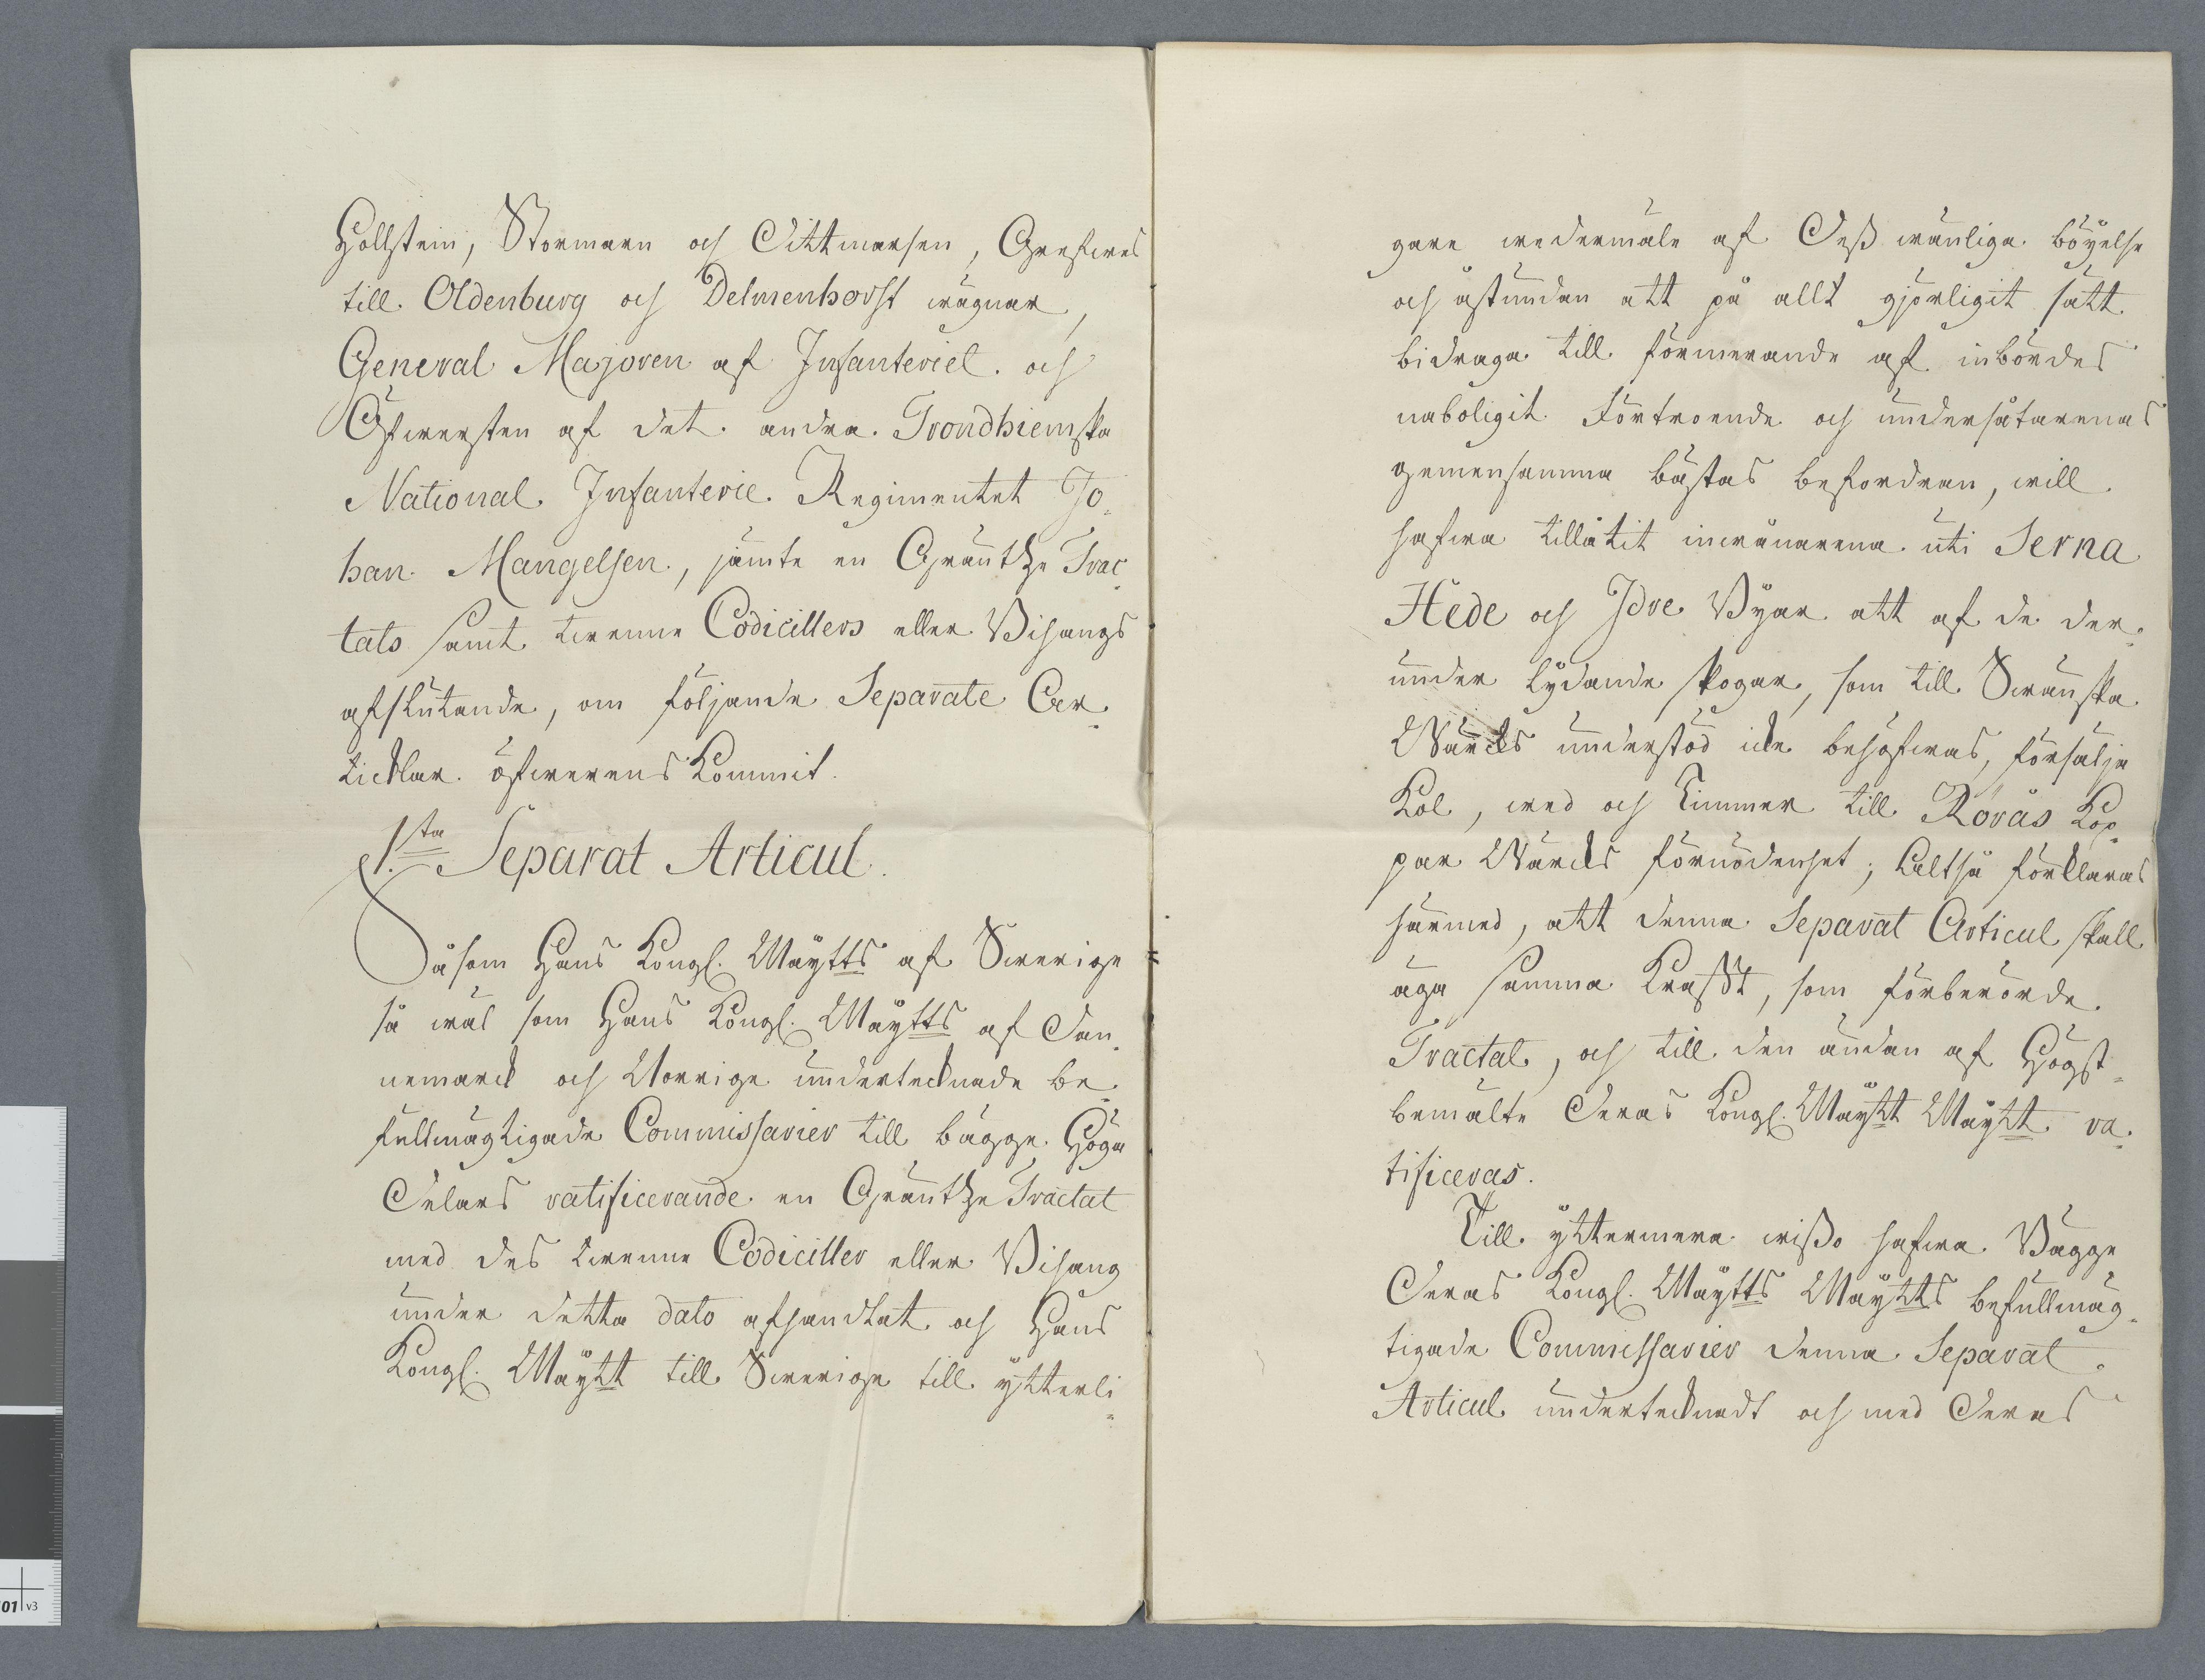 Hollstein, Stormarn och Dittmarsen, Grefwes
till Oldenburg och Delmenhorst wägnar,
General Majoren af Infanteriet och
Öfwersten af det andra Trondhiemska
National Infanterie Regimentet Jo-
han Mangelsen, jämte en Gräntze Trac-
tats samt twenne Codicillers eller Bihangs
afslutande, om följande Separate Ar-
ticklar öfwerens kommit.
1.sta Separat Articul.
Såsom Hans Kongl. Maÿtts af Swerige
så wäl som Hans Kongl. Maÿtts af Dan-
nemarck och Norrige undertecknade be-
fullmägtigade Commissarier till bägge Höga
Delars ratificerande en Gräntze Tractat
med des twenne Codiciller eller Bihang
under detta dato afhandlat och Hans
Kongl. Maÿtt till Swerige till ÿtterli-
gare wedermäle af Deß wänliga böÿelse
och åstundan att på allt gjörligit sätt
bidraga till förmerande af inbördes
naboligit Förtroende och undersåtarenas
gemensamma bästas befordran, will
hafwa tillåtit inwånarena uti Serna
Hede och Idre Bÿar att af de der-
under lÿdande skogar, som till Swänska
Wärcks understöd icke behöfwas, försälja
Kol, wed och Timmer till Rörås Kop-
par Wärcks förnödenhet; Altså förklaras
härmed, att denna Separat Articul skall
äga samma Krafft, som förberörde
Tractat, och till den ändan af Högst-
bemälte Deras Kongl. Maÿtt Maÿtt ra-
tificeras.
Till ÿttermera wißo hafwa Bägge
Deras Kongl. Maÿtts Maÿtts befullmäg-
tigade Commissarier denna Separat
Articul undertecknadt och med Deras